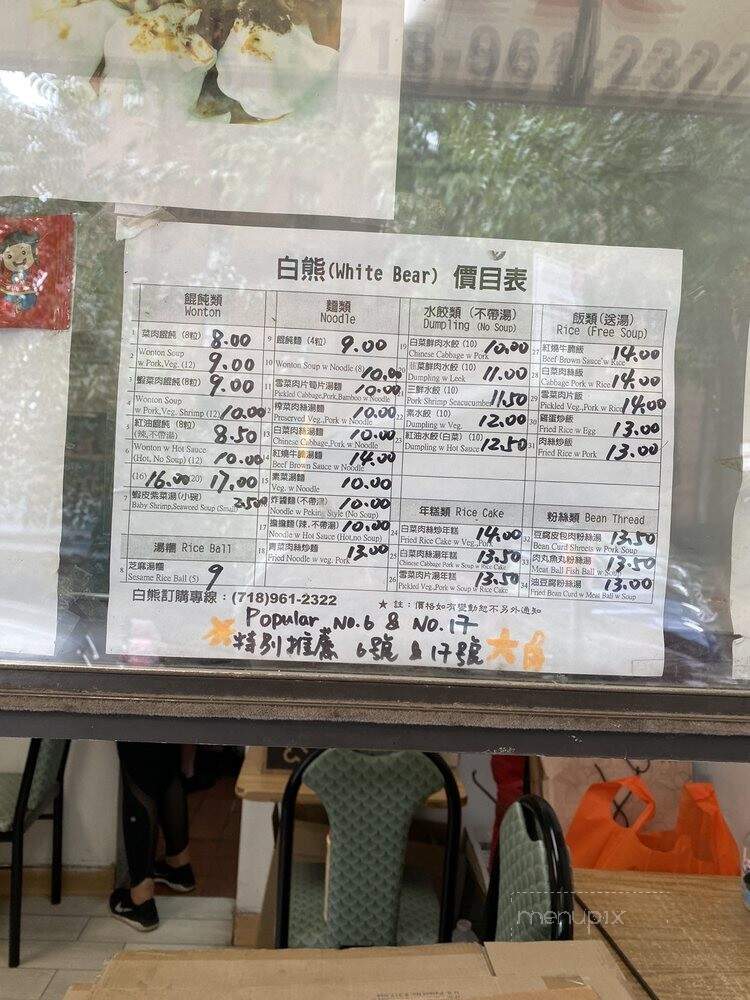 718-961-2322
白熊(White Bear) 價目表
餛飩類
Wonton
1 菜肉餛飩 (8粒) 8.00
2 Wonton Soup
w Pork,Veg. (12) 9.00
3 蝦菜肉餛飩(8粒) 9.00
4 Wonton Soup
w Pork,Veg, Shrimp (12) 10.00
5 紅油餛飩 (8粒)
(辣,不帶湯) 8.50
6 Wonton w Hot Sauce
(Hot, No Soup) (12) 10.00
(16) 16.00 (20) 17.00
7 蝦皮素菜湯(小碗)
Baby Shrimp,Seaweed Soup (Small) 2.50
湯糰 Rice Ball
8 芝麻湯糰
Sesame Rice Ball (5) 9
麵類
Noodle
9 餛飩麵 (4粒) 9.00
10 Wonton Soup w Noodle (8) 10.00
11 雪菜肉片筍片湯麵
Pickled Cabbage,Pork,Bamboo w Noodle 10.00
榨菜肉絲湯麵
Preserved Veg.,Pork w Noodle 10.00
白菜肉絲湯麵
Chinese Cabbage,Pork w Noodle 10.00
14 紅燒牛腩湯麵
Beef Brown Sauce w Noodle 14.00
15 素菜湯麵
Veg. w Noodle 10.00
炸醬麵(不帶湯)
Noodle w Peking Style (No Soup) 10.00
17 擔擔麵(辣,不帶湯)
Noodle w Hot Sauce (Hot,no Soup) 10.00
18 青菜肉絲炒麵
Fried Noodle w veg. Pork 13.00
水餃類 (不帶湯)
Dumpling (No Soup)
19 白菜鮮肉水餃 (10)
Chinese Cabbage w Pork 10.00
韮菜鮮肉水餃 (10)
Dumpling w Leek 11.00
21 三鮮水餃 (10)
Pork Shrimp Seacucumber 11.50
22 素水餃 (10)
Dumpling w Veg. 12.00
23 紅油水餃(白菜) (10)
Dumpling w Hot Sauce 12.50
年糕類 Rice Cake
24 白菜肉絲炒年糕
Fried Rice Cake w Veg., Pork 14.00
25 白菜肉絲湯年糕
Chinese Cabbage Pork w Soup w Rice Cake 13.50
26 雪菜肉片湯年糕
Pickled Veg.,Pork w Soup w Rice Cake 13.50
飯類(送湯)
Rice (Free Soup)
27 紅燒牛腩飯
Beef Brown Sauce w Rice 14.00
28 白菜肉絲飯
Cabbage Pork w Rice 14.00
29 雪菜肉片飯
Pickled Veg.,Pork w Rice 14.00
30 雞蛋炒飯
Fried Rice w Egg 13.00
31 肉絲炒飯
Fried Rice w Pork 13.00
粉絲類 Bean Thread
32 豆腐皮包肉粉絲湯
Bean Curd Shreets w Pork Soup 13.50
33 肉丸魚丸粉絲湯
Meat Ball Fish Ball w Soup 13.50
34 油豆腐粉絲湯
Fried Bean Curd w Meat Ball w Soup 13.00
白熊訂購專線：(718)961-2322
★ 註：價格如有變動恕不另外通知
Popular No.6 & No.17
特別推薦 6號 & 17號
menupix